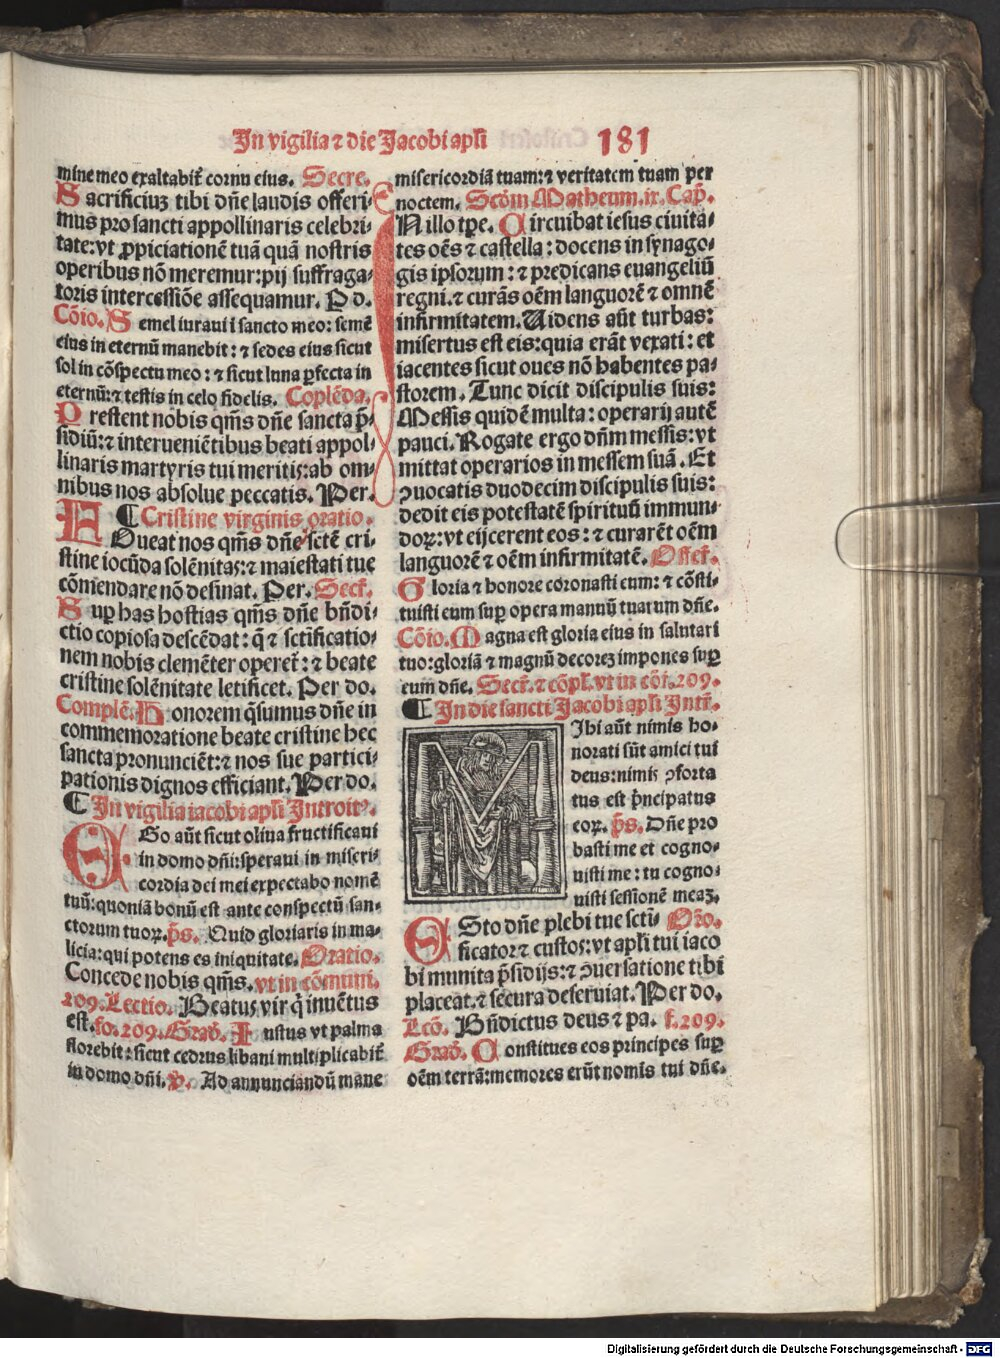 In vigilia ⁊ die Jacobi apli 181
mine meo exaltabit̃ cornu eius. Secre.
Sacrificiuʒ tibi dñe laudis offeri-
mus pro sancti appollinaris celebri-
tate: vt ꝓpiciationẽ tuã quã nostris
operibus nõ meremur: pij suffraga-
toris intercessiõe assequamur. P d.
Cõio. Semel iuraui ĩ sancto meo: semẽ
eius in eternũ manebit: ⁊ sedes eius sicut
sol in cõspectu meo: ⁊ sicut luna ꝑfecta in
eternũ: ⁊ testis in celo fidelis. Coplẽda.
Prestent nobis qm̃s dñe sancta p̃-
sidiũ: ⁊ interueniẽtibus beati appol-
linaris martyris tui meritis: ab om-
nibus nos absolue peccatis. Per.
¶ Cristine virginis oratio.
AOueat nos qm̃s dñe sctẽ cri-
stine iocũda solẽnitas: ⁊ maiestati tue
cõmendare nõ desinat. Per. Secr̃.
Suꝑ has hostias qm̃s dñe bñdi-
ctio copiosa descẽdat: q̃ ⁊ sctificatio-
nem nobis clemẽter operet̃: ⁊ beate
cristine solẽnitate letificet. Per do.
Complẽ. Honorem q̃sumus dñe in
commemoratione beate cristine hec
sancta pronunciẽt: ⁊ nos sue partici-
pationis dignos efficiant. Per do.
¶ In vigilia iacobi apli Introitꝰ.
EGo aũt sicut oliua fructificaui
in domo dñi: speraui in miseri-
cordia dei mei expectabo nomẽ
tuũ: quoniã bonũ est ante conspectũ san-
ctorum tuoꝝ. p̃s. Quid gloriaris in ma-
licia: qui potens es iniquitate. Oratio.
Concede nobis qm̃s. vt in cõmuni.
209. Lectio. Beatus vir q̃ inuẽtus
est. fo. 209. Grad̃. Iustus vt palma
florebit: sicut cedrus libani multiplicabit̃
in domo dñi. ℣. Ad annunciandũ mane
misericordiã tuam: ⁊ veritatem tuam per
noctem. Scðm Matheum. ix. Cap̃.
IN illo tꝑe. Circuibat iesus ciuita-
tes oẽs ⁊ castella: docens in synago-
gis ipsorum: ⁊ predicans euangeliũ
regni. ⁊ curãs oẽm languorẽ ⁊ omnẽ
infirmitatem. Uidens aũt turbas:
misertus est eis: quia erãt vexati: et
iacentes sicut oues nõ habentes pa-
storem. Tunc dicit discipulis suis:
Messis quidẽ multa: operarij autẽ
pauci. Rogate ergo dñm messis: vt
mittat operarios in messem suã. Et
ꝯuocatis duodecim discipulis suis:
dedit eis potestatẽ spirituũ immun-
doꝝ: vt eijcerent eos: ⁊ curarẽt oẽm
languorẽ ⁊ oẽm infirmitatẽ. Offer̃.
Gloria ⁊ honore coronasti eum: ⁊ cõsti-
tuisti eum suꝑ opera manuũ tuarum dñe.
Cõio. Magna est gloria eius in salutari
tuo: gloriã ⁊ magnũ decoreʒ impones suꝑ
eum dñe. Secr̃. ⁊ cõpl̃. vt in cõi. 209.
¶ In die sancti Jacobi apli Intr̃.
MIhi aũt nimis ho-
norati sũt amici tui
deus: nimis ꝯforta
tus est p̃ncipatus
eoꝝ. p̃s. Dñe pro
basti me et cogno-
uisti me: tu cogno-
uisti sessionẽ meaʒ.
ESto dñe plebi tue scti- Or̃o.
ficator ⁊ custos: vt apli tui iaco
bi munita p̃sidijs: ⁊ ꝯuersatione tibi
placeat. ⁊ secura deseruiat. Per do.
Lcõ. Bñdictus deus ⁊ pa. f. 209.
Grad̃. Constitues eos principes suꝑ
oẽm terrã: memores erũt nomis tui dñe.
Digitalisierung gefördert durch die Deutsche Forschungsgemeinschaft - DFG